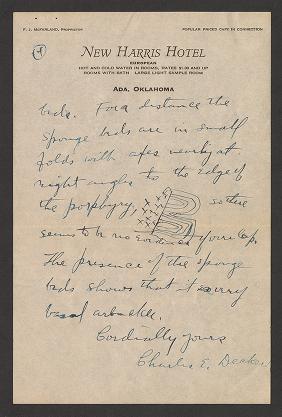 F. J. McFARLAND, PROPRIETOR
POPULAR PRICED CAFE IN CONNECTION
NEW HARRIS HOTEL
EUROPEAN
HOT AND COLD WATER IN ROOMS, RATES $1.00 AND UP
ROOMS WITH BATH LARGE LIGHT SAMPLE ROOM
ADA, OKLAHOMA
beds. For a distance the
sponge beds are in small
folds with axes nearly at
right angles to the edge of
the porphyry, so there
seems to be no evidence of
The presence of the sponge
beds shows that it is very
basal arbuckle.
Cordially yours
Charles E. Decker